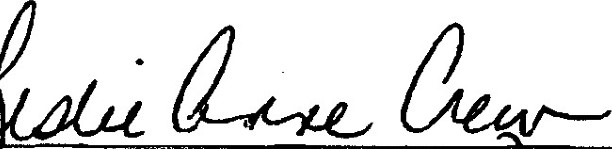 Leslie Anne Crew